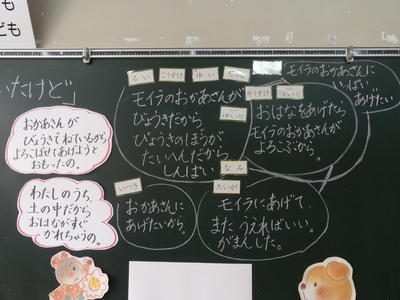 も
ども
いたけど」
るい
こうすけ
ゆい
モイラのおかあさんが
びょうきだから
びょうきのほうが
たいへんだから
しんぱい
こうすけ
ゆいと
ゆいと
おはなをあげたら
モイラのおかあさんが
よろこぶから。
モイラのおかあさんに
いっぱい
あげたい
おかあさんが
びょうきでねているから
よろこばせてあげようと
おもったの。
わたしのうち、
土の中だから
おはながすぐ
かれちゃうの。
いつき
おかあさんに
あげたいから。
なみ
たいが
モイラにあげて、
またうえればいい。
がまんした。